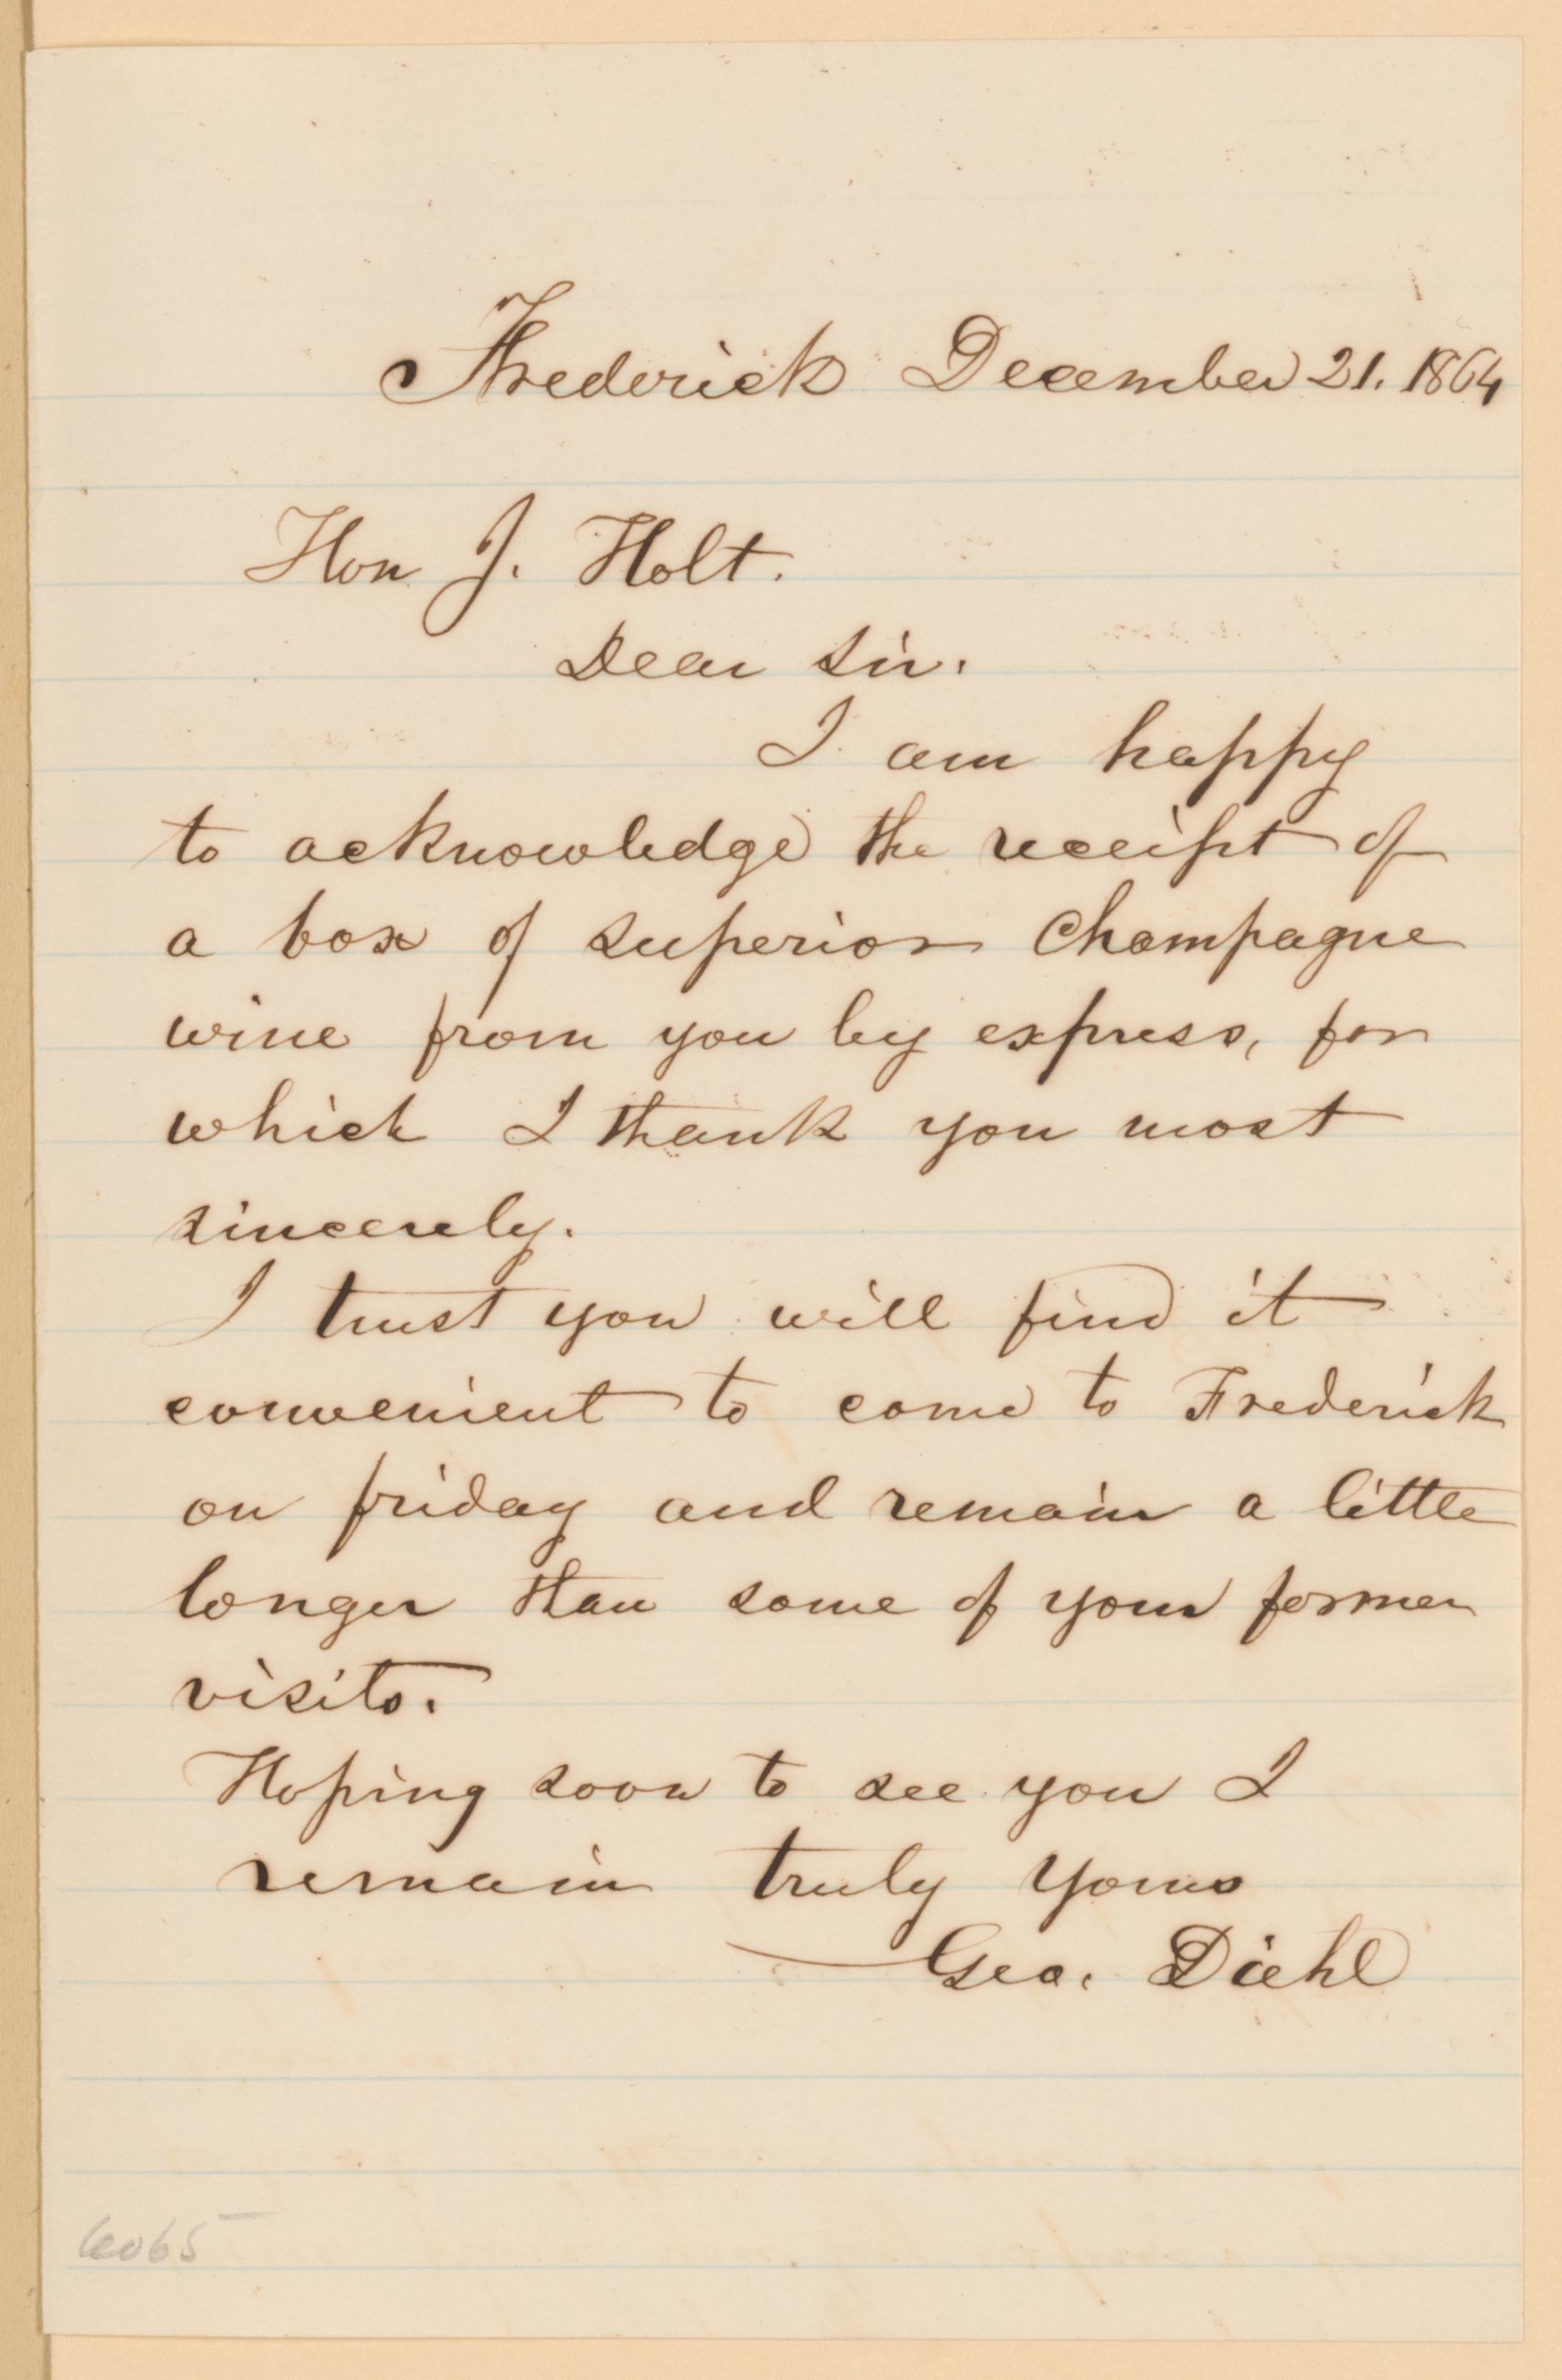 Frederick December 21. 1864
Hon J. Holt.
Dear Sir.
I am happy
to acknowledge the receipt of
a box of superior Champagne
wine from you by express, for
which I thank you most
sincerely.
I trust you will find it
convenient to come to Frederick
on friday and remain a little
longer than some of your former
visits.
Hoping soon to see you I
remain truly yours
Geo. Diehl
6065